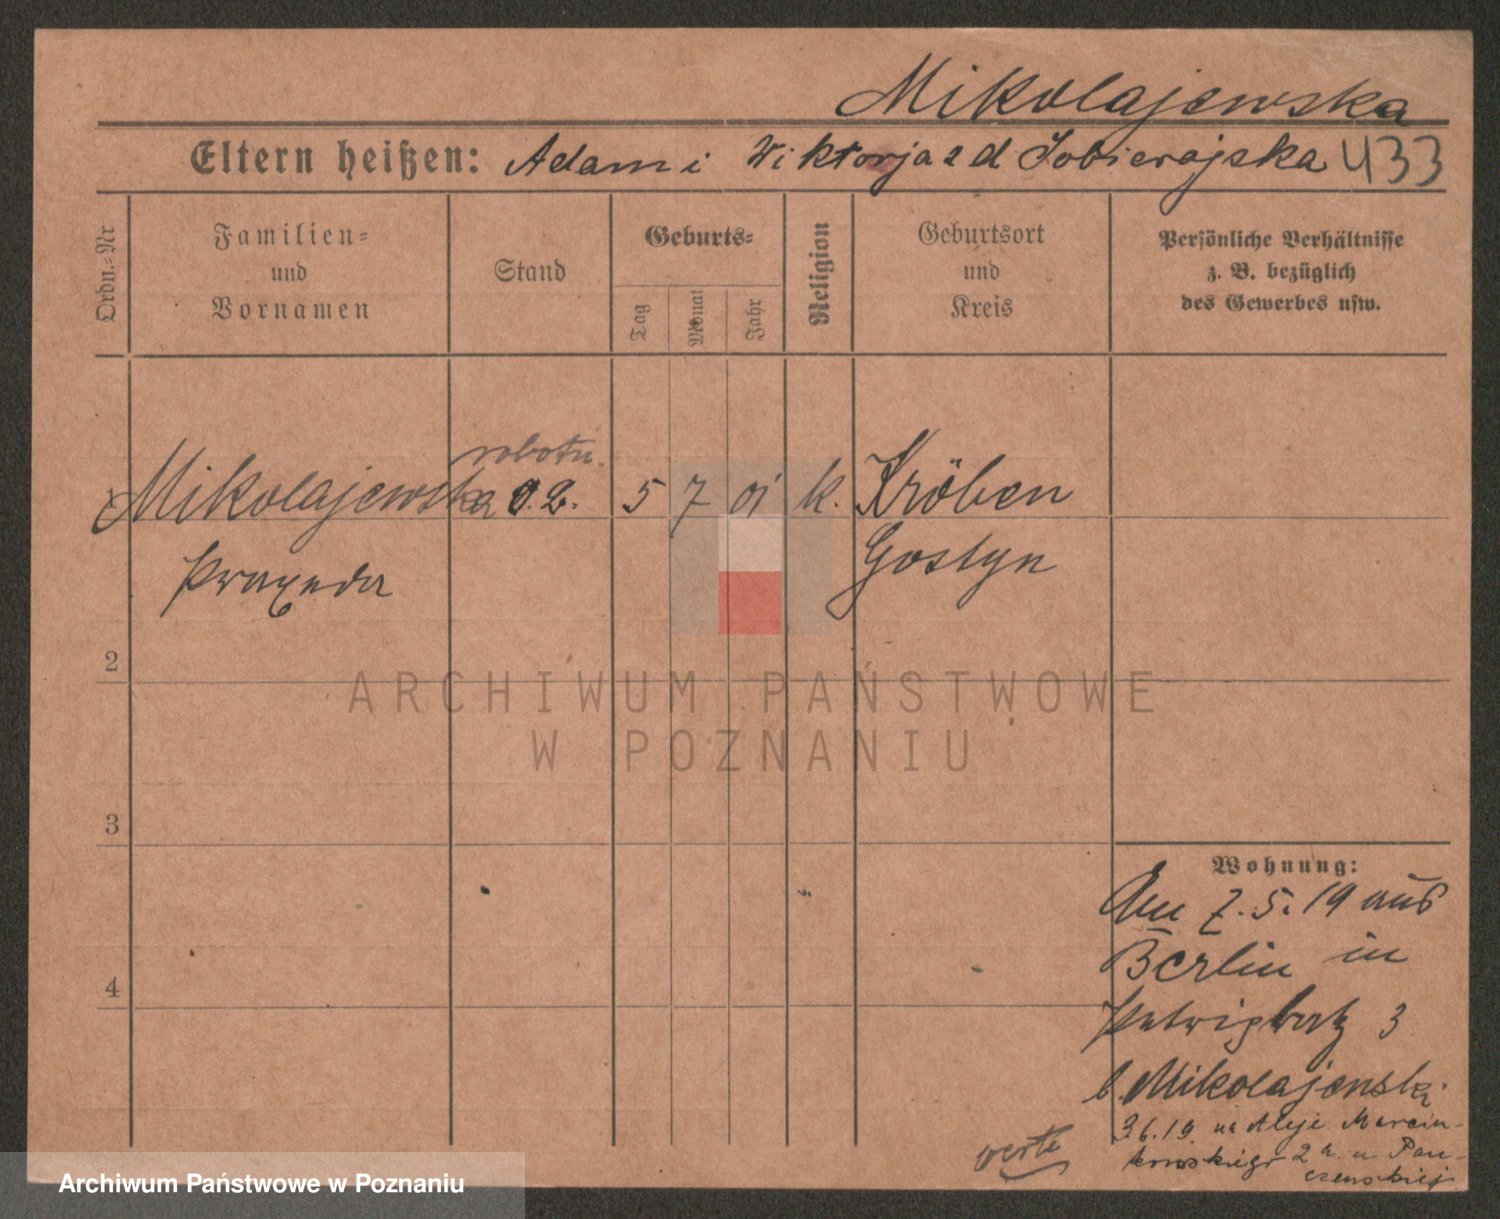 Mikolajewska
Eltern heißen: Adam i Wiktorja z d Sobierajska 433
Ordn.-Nr
Familien-
und
Vornamen
Stand
Geburts-
Tag
Monat
Jahr
Religion
Geburtsort
und
Kreis
Persönliche Verhältnisse
z. B. bezüglich
des Gewerbes usw.
robotn.
1 Mikolajewska 5 7 01 k. Kröben
Praxeda Gostyn
2
ARCHIWUM PAŃSTWOWE
W POZNANIU
3
4
Wohnung:
Am 7.5.19 aus
Berlin in
3
b. Mikolajewski
3.6.19. na Aleje Marcin-
kowskiego 2 u Pan-
czenskiej
verte
Archiwum Państwowe w Poznaniu